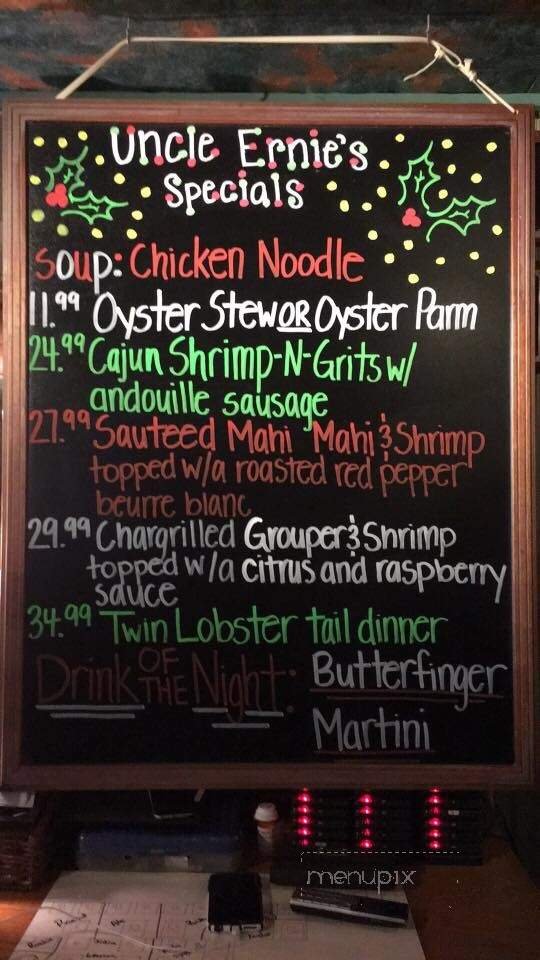 Uncle Ernie's
Specials
Soup: Chicken Noodle
11.99 Oyster Stew OR Oyster Parm
24.99 Cajun Shrimp-N-Grits w/
andouille sausage
27.99 Sauteed Mahi Mahi & Shrimp
topped w/a roasted red pepper
beurre blanc
29.99 Chargrilled Grouper & Shrimp
topped w/a citrus and raspberry
sauce
34.99 Twin Lobster tail dinner
Drink OF THE Night: Butterfinger
Martini
menupix